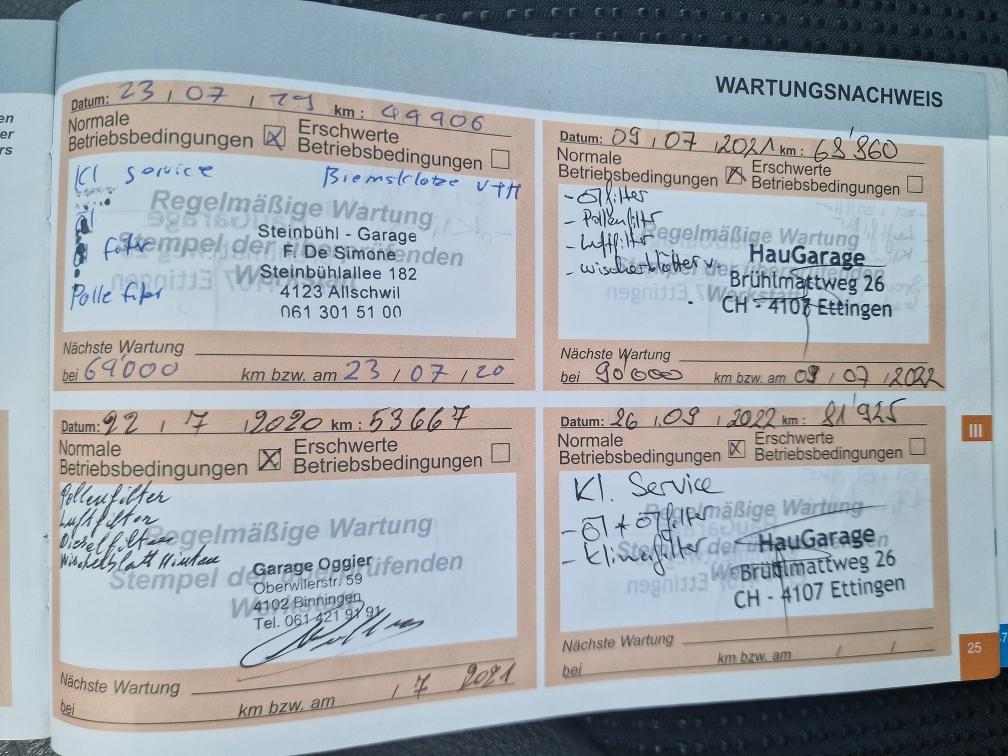 en
er
rs
WARTUNGSNACHWEIS
Datum: 23 / 07 / 19 km : 49906
Normale Betriebsbedingungen ☒ Erschwerte Betriebsbedingungen ☐
Kl service Bremsklötze V+H
Regelmäßige Wartung
Stempel der überprüfenden
Steinbühl - Garage
F. De Simone
Steinbühlallee 182
4123 Allschwil
061 301 51 00
Nächste Wartung
bei 69'000 km bzw. am 23 / 07 / 20
Datum: 22 / 7 / 2020 km : 53667
Normale Betriebsbedingungen ☒ Erschwerte Betriebsbedingungen ☐
Pollenfilter
Luftfilter
Dieselfilter
Wischerblatt Hinten
Regelmäßige Wartung
Stempel der überprüfenden
Garage Oggier
Oberwilerstr. 59
4102 Binningen
Tel. 061 421 91 91
Nächste Wartung
bei km bzw. am / 7 2021
Datum: 09 / 07 / 2021 km :
Normale Betriebsbedingungen ☒ Erschwerte Betriebsbedingungen ☐
- Ölfilter
- Pollenfilter
- Luftfilter
- wischerblätter v.
Regelmäßige Wartung
HauGarage
Brühlmattweg 26
CH - 4107 Ettingen
Nächste Wartung
bei 90'000 km bzw. am 09 / 07 / 2022
Datum: 26 / 09 / 2022 km : 81'925
Normale Betriebsbedingungen ☒ Erschwerte Betriebsbedingungen ☐
Kl. Service
- Öl + Ölfilter
- Klimafilter
Regelmäßige Wartung
HauGarage
Brühlmattweg 26
CH - 4107 Ettingen
Nächste Wartung
bei km bzw. am / /
III
25